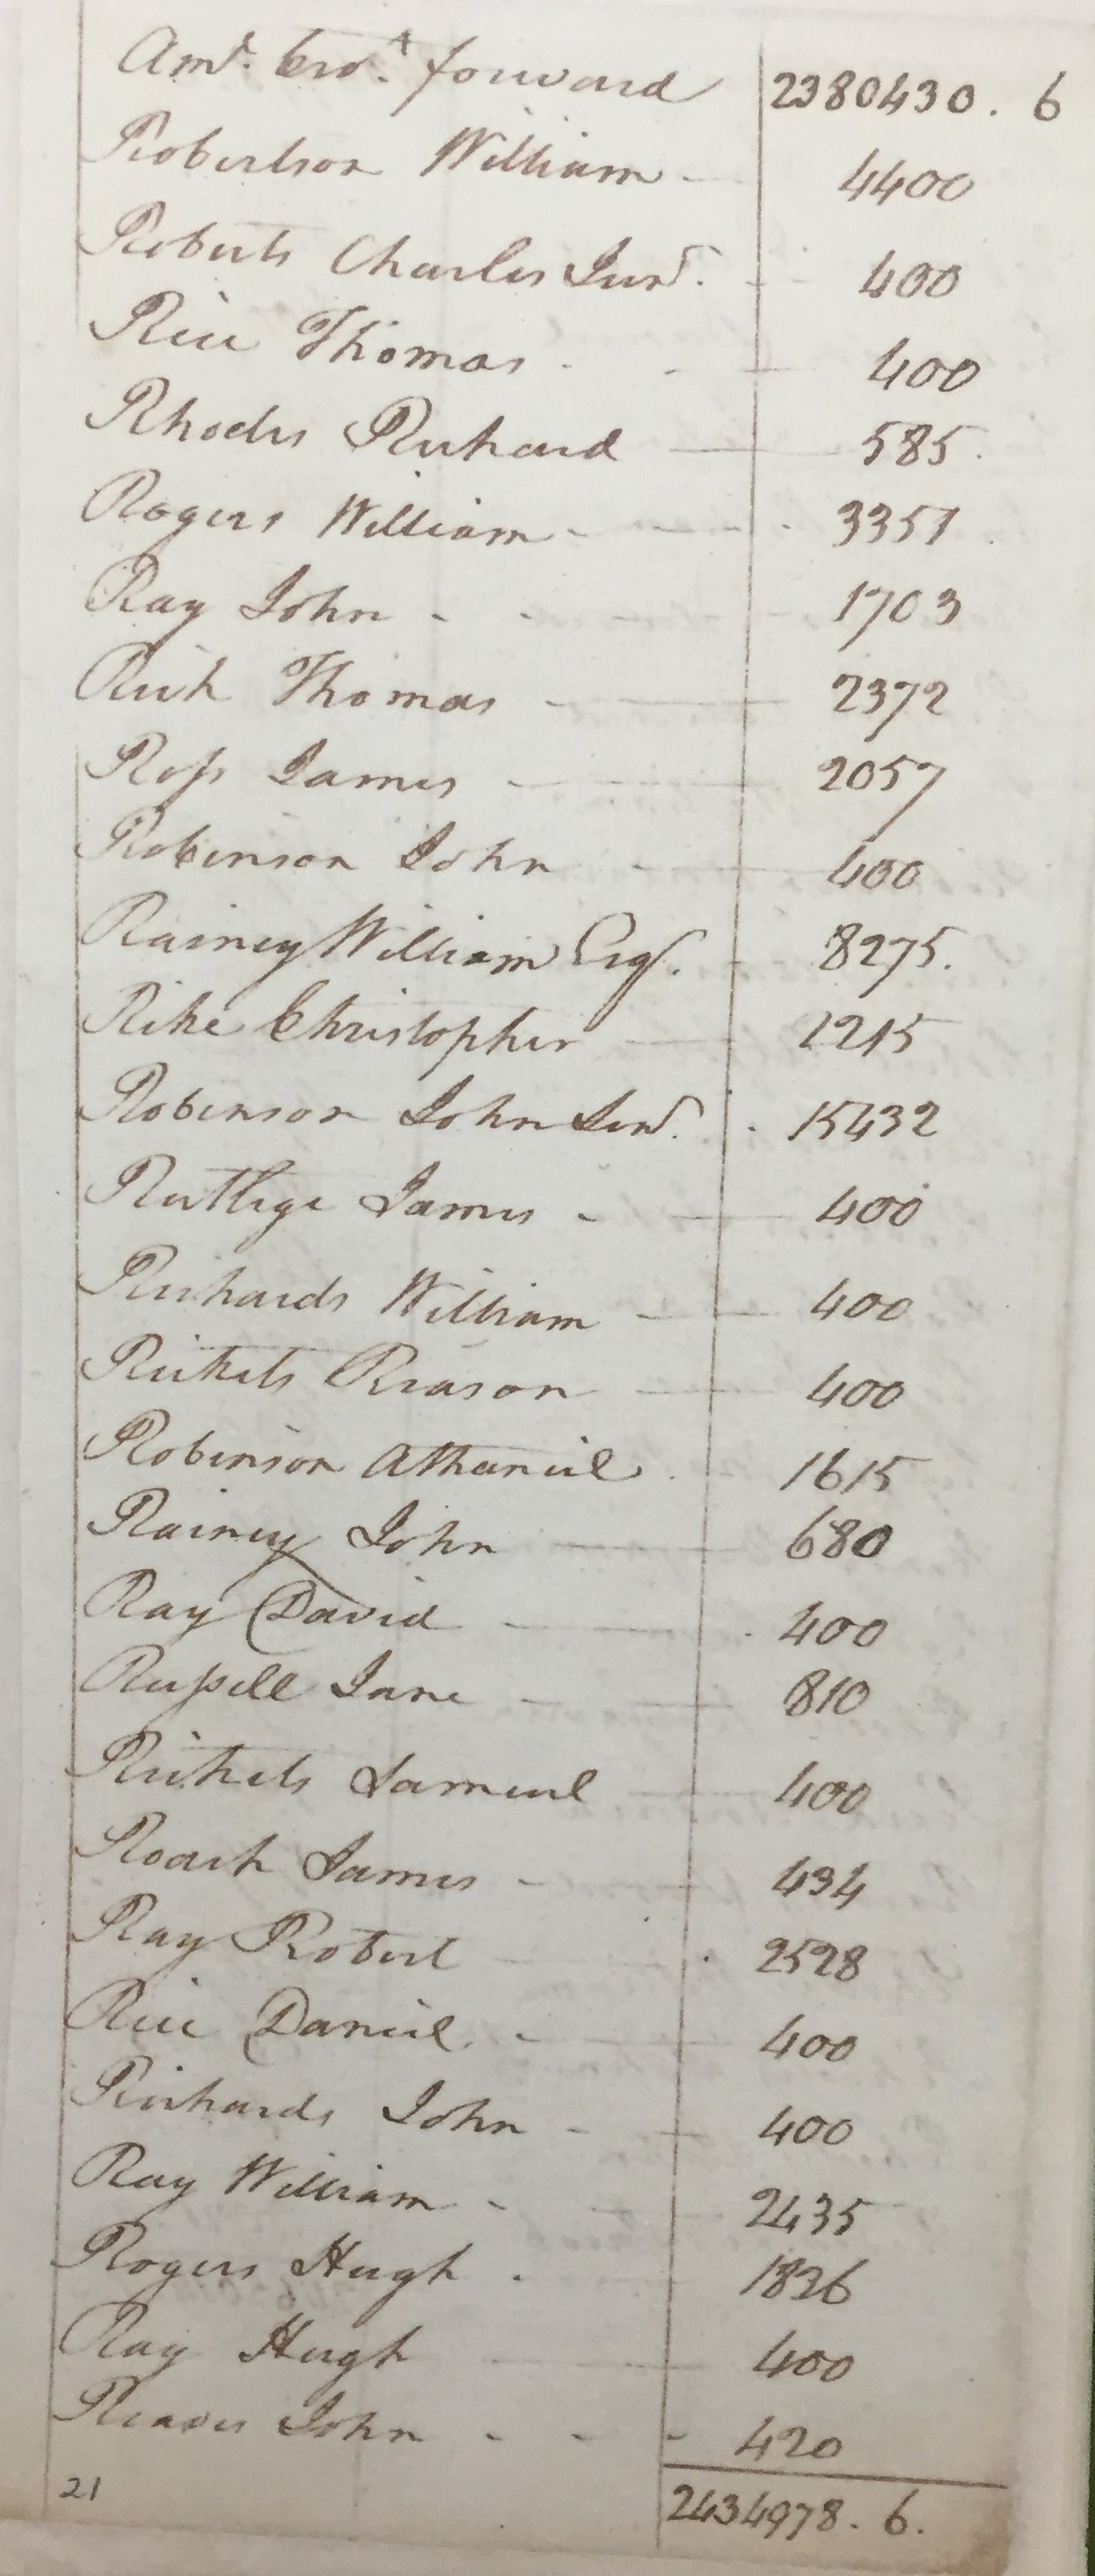 Amt. bro.t forward 2380430. 6
Robertson William 4400
Roberts Charles Junr. 400
Rice Thomas 400
Rhodes Richard 585
Rogers William 3351
Ray John 1703
Rich Thomas 2372
Ross James 2057
Robinson John 400
Rainey William Esqr. 8275.
Rike Christopher 1215
Robinson John Senr. 15432
Rutlige James 400
Richards William 400
Rickets Reason 400
Robinson Athaniel 1615
Rainey John 680
Ray David 400
Russell Jane 810
Rickets Samuel 400
Roach James 434
Ray Robert 2528
Rice Daniel 400
Richards John 400
Ray William 2435
Rogers Hugh 1836
Ray Hugh 400
Reaves John 420
21 2434978. 6.